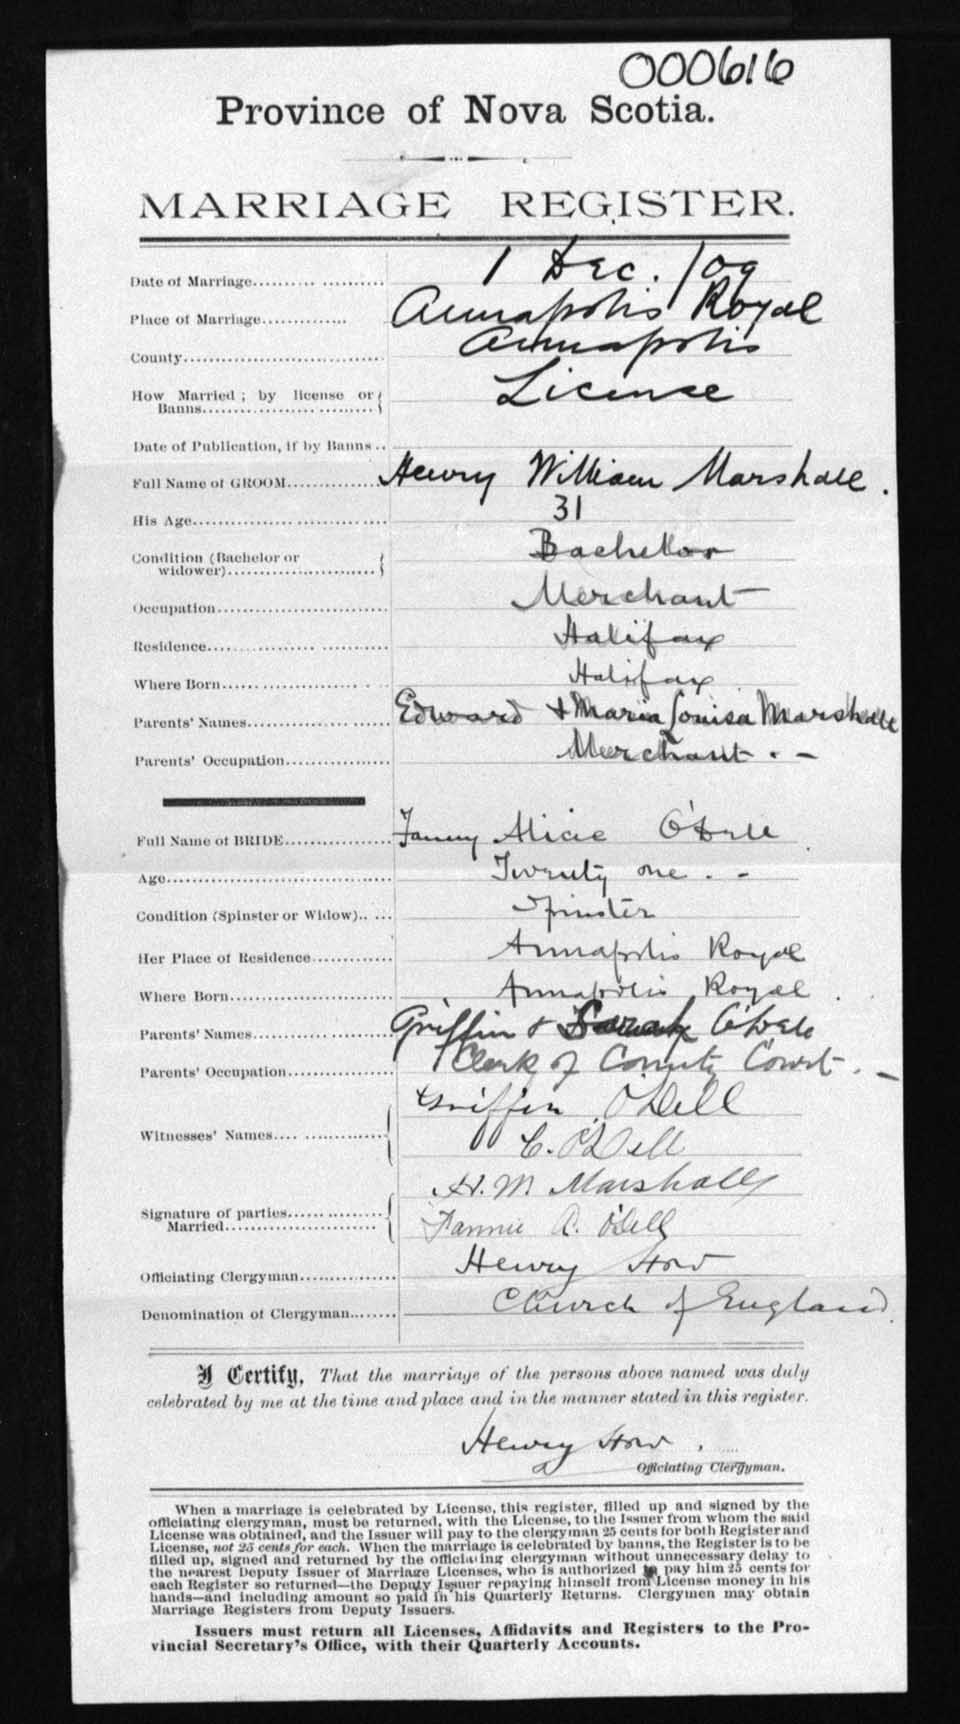 000616
Province of Nova Scotia.
MARRIAGE REGISTER.
Date of Marriage 1 Dec. /09
Place of Marriage Annapolis Royal
County Annapolis
How Married ; by license or
Banns License
Date of Publication, if by Banns
Full Name of GROOM Henry William Marshall.
His Age 31
Condition (Bachelor or
widower) Bachelor
Occupation Merchant
Residence Halifax
Where Born Halifax
Parents' Names Edward & Maria Louisa Marshall
Parents' Occupation Merchant. -
Full Name of BRIDE Fanny Alicie O'Dell
Age Twenty one. -
Condition (Spinster or Widow) Spinster
Her Place of Residence Annapolis Royal
Where Born Annapolis Royal
Parents' Names Griffin & Sarah O'Dell
Parents' Occupation Clerk of County Court. -
Griffin O'Dell
Witnesses' Names
C. O'Dell
H. M. Marshall
Signature of parties
Married Fannie A. O'Dell
Officiating Clergyman Henry How
Denomination of Clergyman Church of England
I Certify, That the marriage of the persons above named was duly
celebrated by me at the time and place and in the manner stated in this register.
Henry How.
Officiating Clergyman.
When a marriage is celebrated by License, this register, filled up and signed by the
officiating clergyman, must be returned, with the License, to the Issuer from whom the said
License was obtained, and the Issuer will pay to the clergyman 25 cents for both Register and
License, not 25 cents for each. When the marriage is celebrated by banns, the Register is to be
filled up, signed and returned by the officiating clergyman without unnecessary delay to
the nearest Deputy Issuer of Marriage Licenses, who is authorized to pay him 25 cents for
each Register so returned—the Deputy Issuer repaying himself from License money in his
hands—and including amount so paid in his Quarterly Returns. Clergymen may obtain
Marriage Registers from Deputy Issuers.
Issuers must return all Licenses, Affidavits and Registers to the Pro-
vincial Secretary's Office, with their Quarterly Accounts.